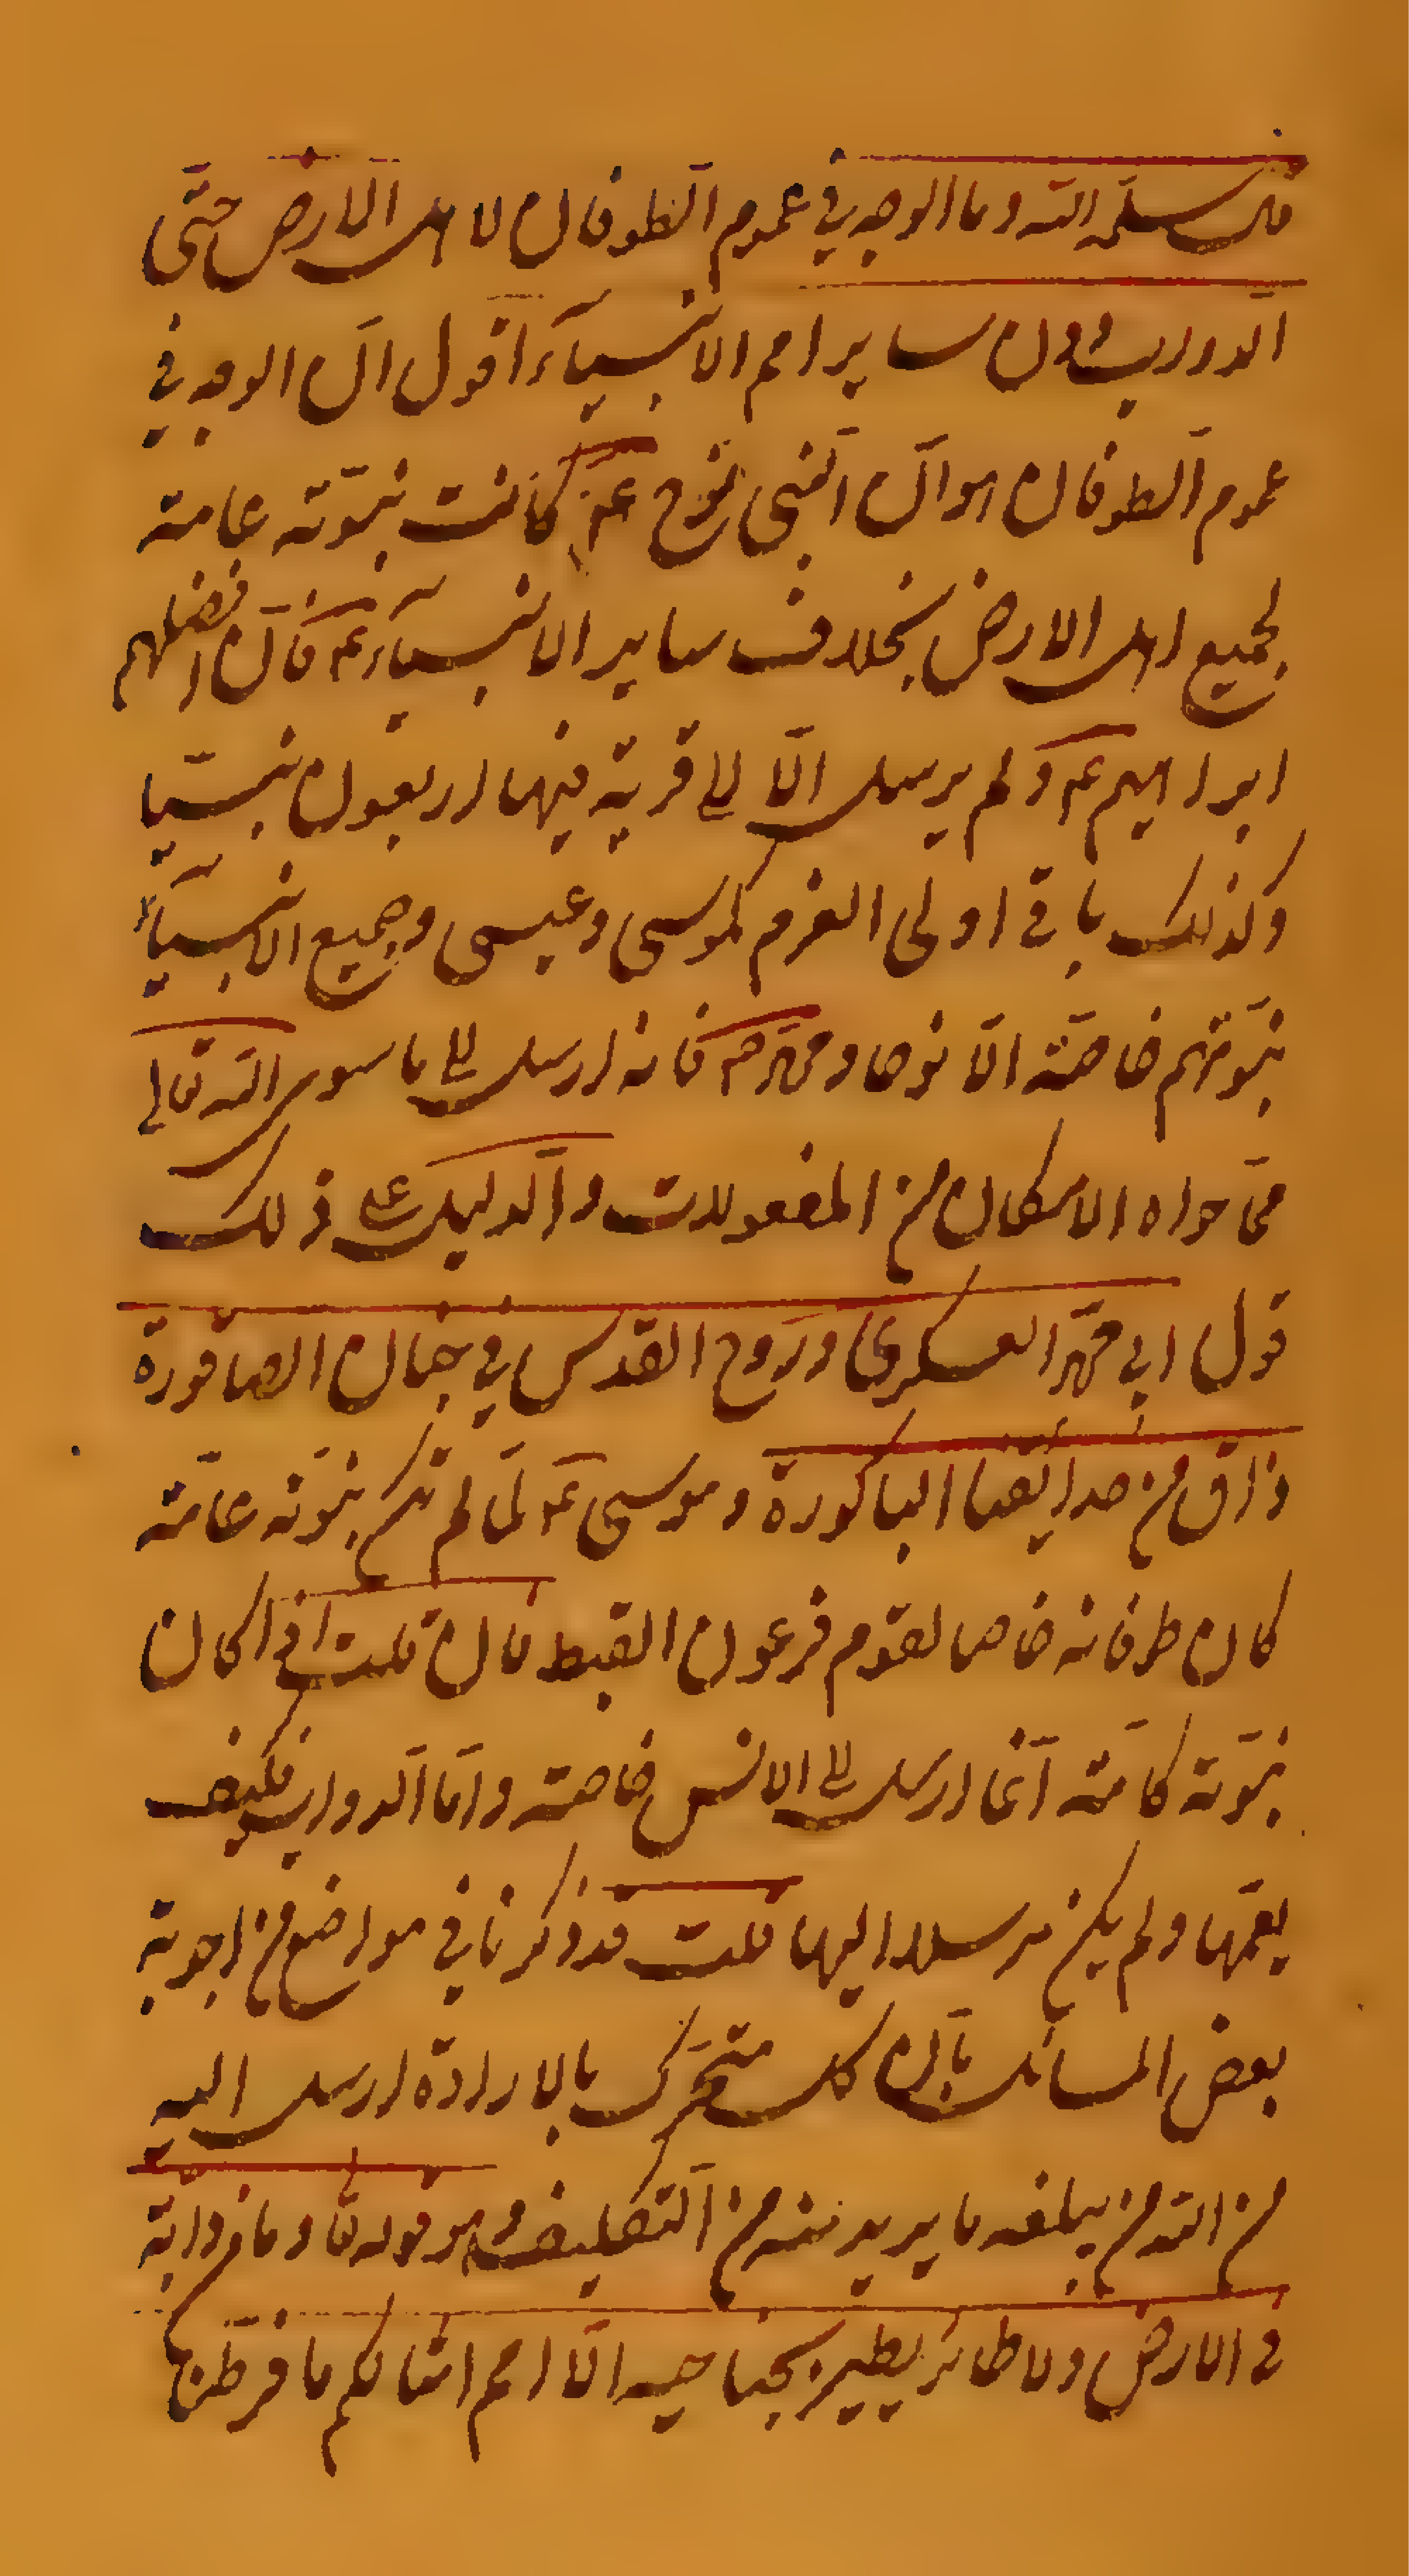 قال سلمه الله وما الوجه في عموم الطوفان لاهل الارض حتّى
الدواب دون ساير امم الانبيآء اقول انّ الوجه في
عموم الطوفان هو انّ النبي نوح عم كانت نبوّته عامة
لجميع اهل الارض بخلاف ساير الانبيآء عم فانّ افضلهم
ابراهيم عم ولم يرسل الّا الى قرية فيها اربعون نبيّا
وكذلك باقي اولى العزم كموسى وعيسى وجميع الانبيآء
نبوّتهم خاصّة الّا نوحا ومحمّد ص فانه ارسل الى ما سوى الله تعالى
ممّا حواه الامكان من المفعولات والدّليل على ذلك
قول ابي محمّد العسكري وروح القدس في جنان الصاقورة
ذاق من حدائقنا الباكورة وموسى عم لمّا لم تكن نبوّته عامّة
كان طوفانه خاصا لقوم فرعون القبط فان قلت اذا كان
نبوّته كامّة انّما ارسل الى الانس خاصة وامّا الدّواب فكيف
يعمّها ولم يكن مرسلا اليها قلت قد ذكرنا في مواضع من اجوبة
بعض المسائل بانّ كل متحرّك بالارادة ارسل اليه
من الله من يبلغه ما يريد منه من التّكليف وهو قوله تعا وما من دابّة
في الارض ولا طائر يطير بجناحيه الّا امم امثالكم ما فرّطنا